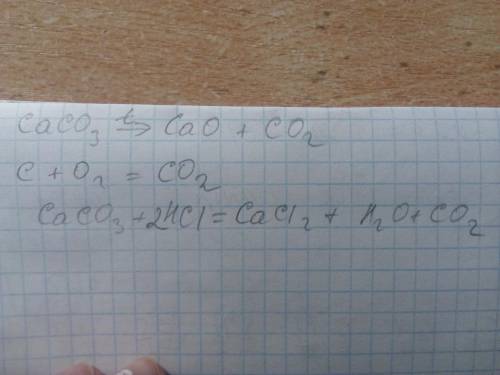 CaCO₃ →ᵗ CaO + CO₂
C + O₂ = CO₂
CaCO₃ + 2HCl = CaCl₂ + H₂O + CO₂